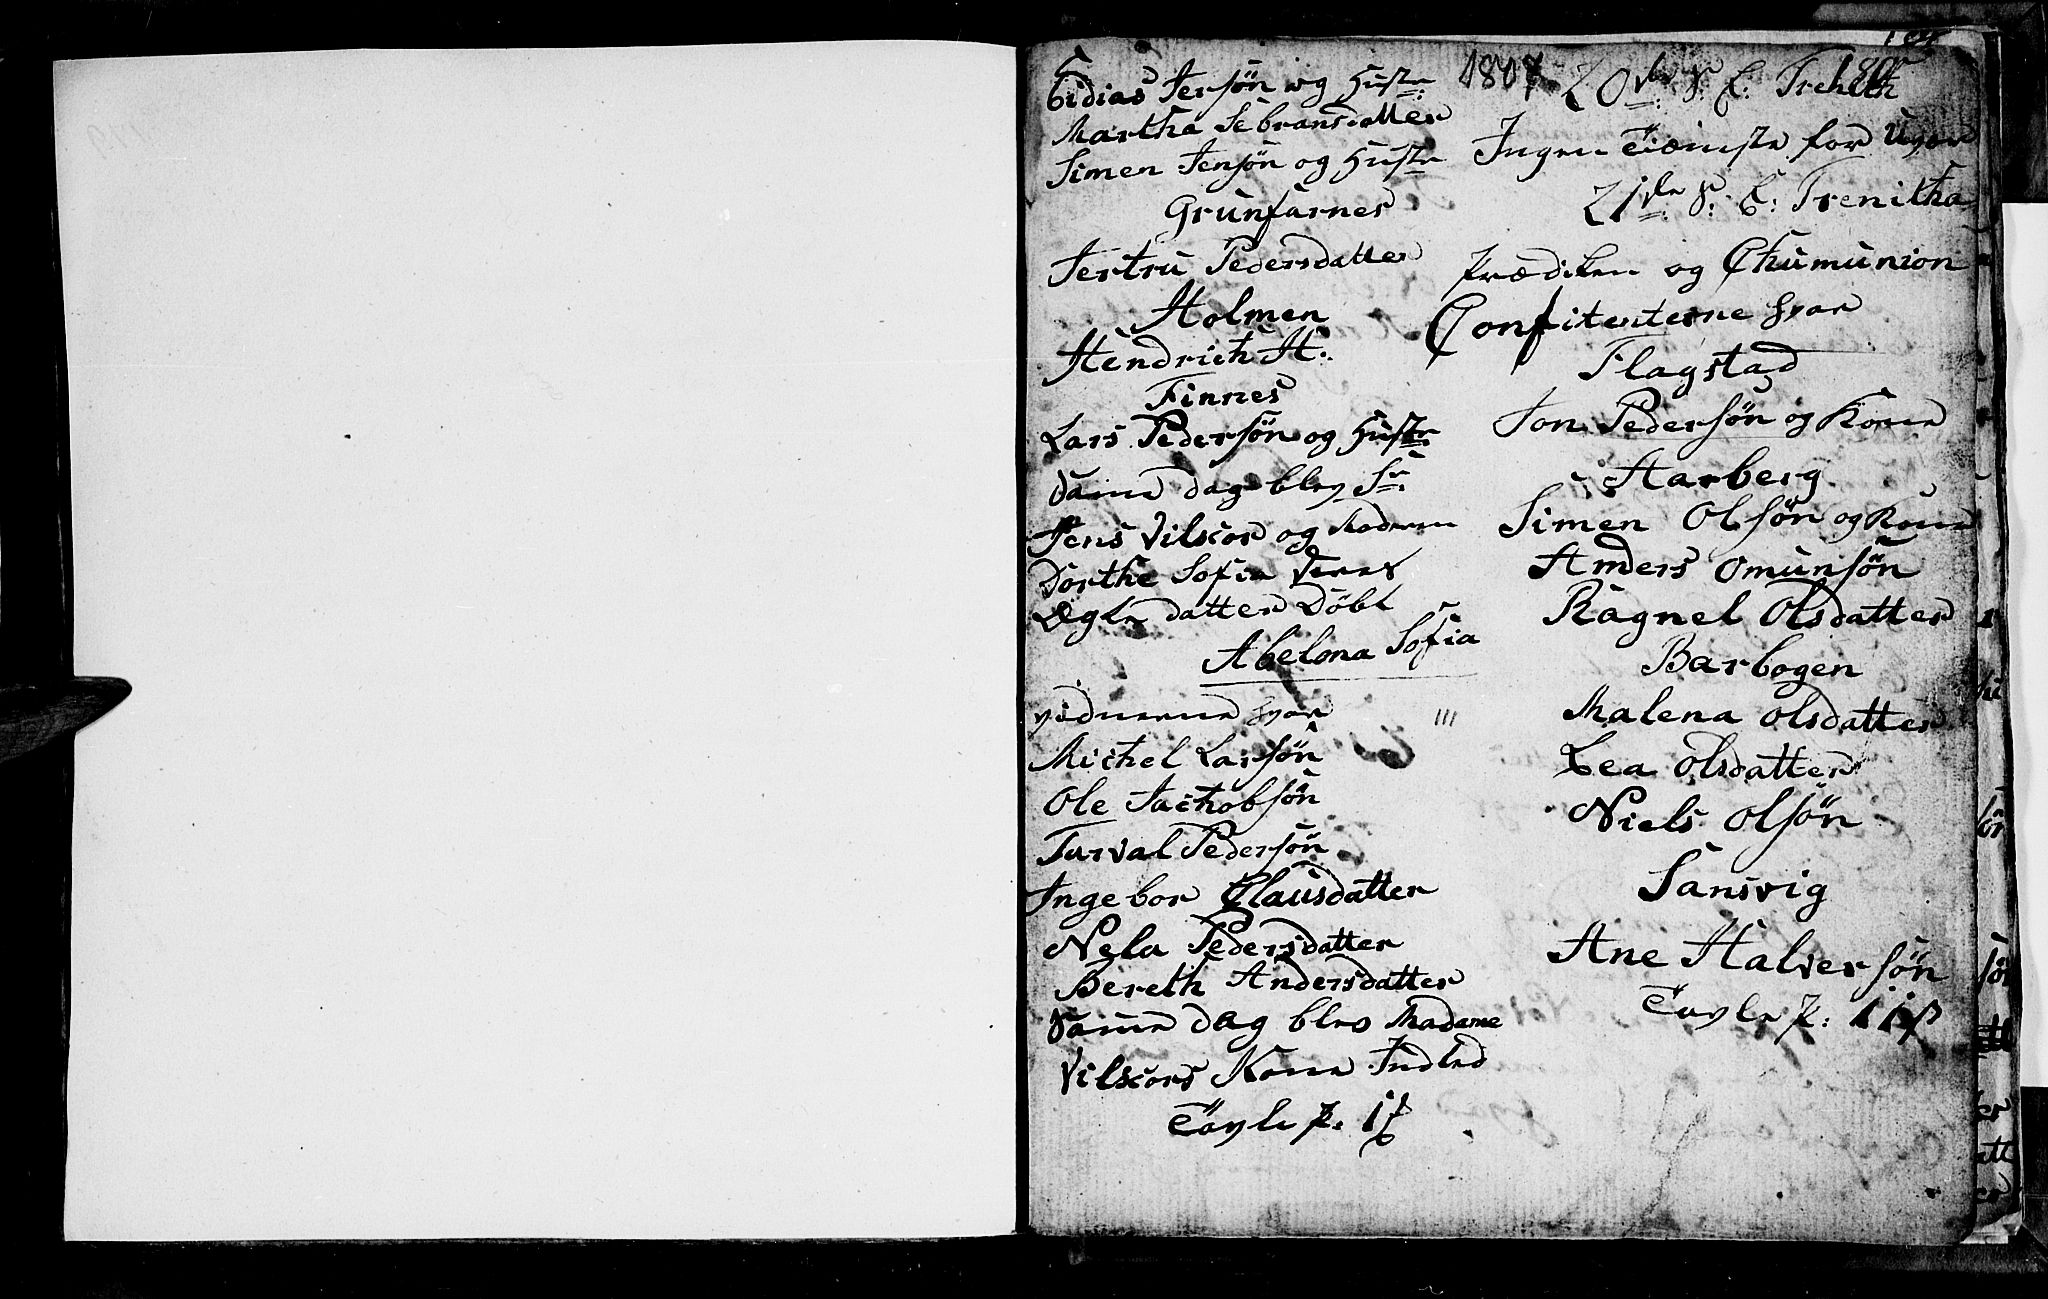 1807
Martha Sebransdatter
Simen Jensøn og Hustr
Grunfarnes
Jertru Pedersdatter
Holmen
Hendrich H:
Finnes
Lars Pedersøn og Hustr
Same dag blev Sr:
Jens Vilscor og Madame
Dorthe Sofia
Ægte datter Döbt
Abelona Sofia
vidnerne hvar
Michel Larsøn
Ole Jachobsøn
Tarval Pedersøn
Ingebor Clausdatter
Nela Pedersdatter
Bereth Andersdatter
Same dag blev Madame
Vilscors Kone Indled
Tavle p: 1
20de S. E: Treheth
Ingen Tiæniste for
21de S: E: Trenitha
Prædiken og Chumunion
Confitenterne hvar
Flagstad
Jon Pedersøn og Kone
Aarberg
Simen Olsøn og Kone
Anders Omunsøn
Ragnel Olsdatter
Barbogen
Malena Olsdatter
Lea Olsdatter
Niels Olsøn
Sansvig
Ane Halversøn
Tavle p: 11 ß